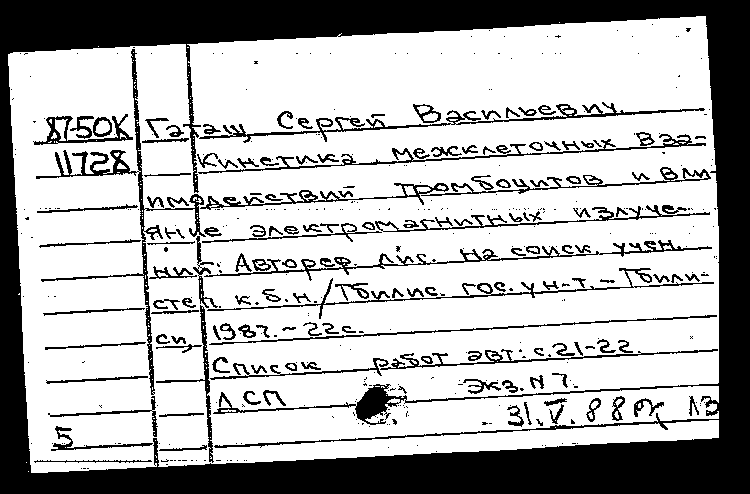 87-50К Гаташ, Сергей Васильевич.
11728 Кинетика межклеточных вза-
имодействий тромбоцитов и вли-
яние электромагнитных излуче-
ний: Автореф. дис. на соиск. учен.
степ. к.б.н. / Тбилис. гос. ун-т. - Тбили-
си, 1987. - 22 с.
Список работ авт: с. 21-22.
ДСП Экз. N 7.
5 31.V.88